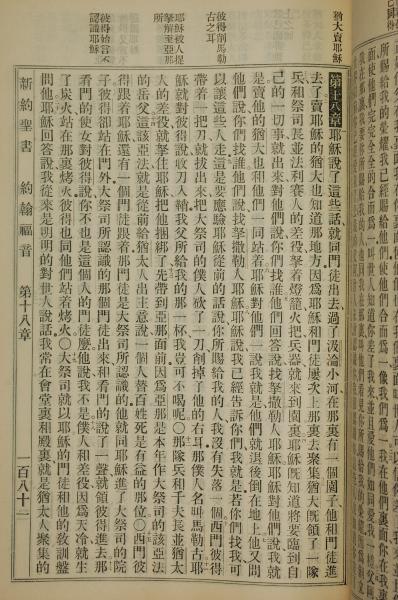 所賜給我的榮耀我已經賜給他們使他們合而為一像我們合而為一我在他們裏面你在我
面使他們完完全全的合而為一叫世人知道你差了我來並且愛他們如同愛我一樣父
猶大賣耶穌
彼得削馬勒
古之耳
耶穌被人捉
拏解至亞那
彼得始言不
認識耶穌
第十八章耶穌說了這些話就同門徒出去過了汲淪小河在那裏有一個園子他和門徒進
去了賣耶穌的猶大也知道那地方因為耶穌和門徒屢次上那裏去聚集猶大既領了一隊
兵和祭司長並法利賽人的差役拏着燈籠火把兵器就來到園裏耶穌既知道將要臨到自
己的一切事就出來對他們說你們找誰他們回答說找拏撒勒人耶穌耶穌對他們說我就
是賣他的猶大也和他們一同站着耶穌對他們一說我就是他們就退後倒在地上他又問
他們說你們找誰他們說找拏撒勒人耶穌耶穌說我已經告訴你們我就是若你們找我可
以讓這些人走這是要應驗耶穌從前的話說你所賜給我的人我沒有失落一個西門彼得
帶着一把刀就拔出來把大祭司的僕人砍了一刀削掉了他的右耳那僕人名叫馬勒古耶
穌就對彼得說收刀入鞘我父所給我的那一杯我豈可不喝呢○那隊兵和千夫長並猶太
人的差役就拏住耶穌把他捆綁了先帶到亞那面前因為亞那是本年作大祭司的該亞法
的岳父這該亞法就是從前給猶太人出主意說一個人替百姓死是有益的那位○西門彼
得跟着耶穌還有一個門徒跟着那門徒是大祭司所認識的他就同耶穌進了大祭司的院
子彼得卻站在門外大祭司所認識的那個門徒出來和看門的說了一聲就領彼得進去那
看門的使女對彼得說你不也是這個人的門徒麼他說我不是僕人和差役因為天冷就生
了炭火站在那裏烤火彼得也同他們站着烤火○大祭司就以耶穌的門徒和他的教訓盤
問他耶穌回答說我從來是明明的對世人說話我常在會堂裏和殿裏就是猶太人聚集的
新約聖書 約翰福音 第十八章 一百八十一